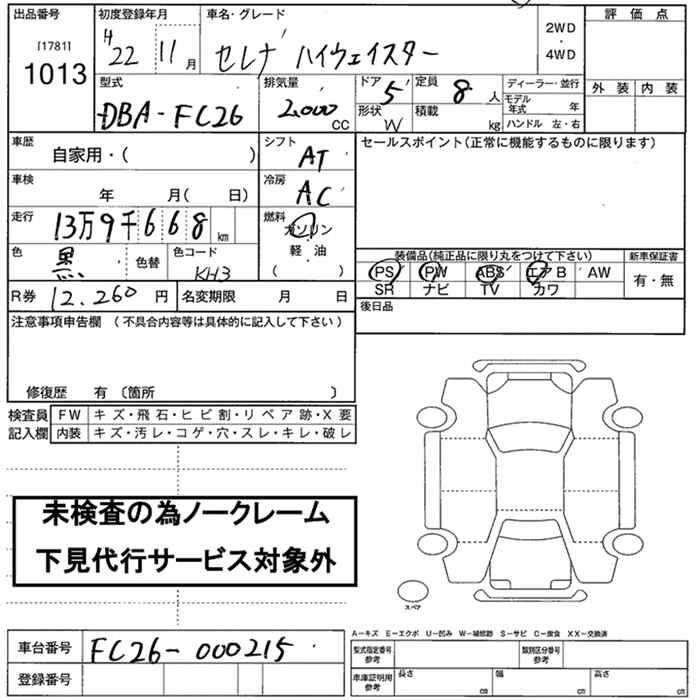 出品番号 初度登録年月 車名・グレード 評価点
[1781] 1013 H22 11月 セレナ ハイウェイスター 2WD・4WD
型式 排気量 ドア 5 定員 8人 ディーラー・並行 外装 内装
DBA-FC26 2,000CC 形状 W 積載 kg モデル年式 年
ハンドル 左・右
車歴 自家用・( ) シフト AT セールスポイント(正常に機能するものに限ります)
車検 年 月( 日) 冷房 AC
走行 13万9千668km 燃料 ガソリン・軽油 ( )
色 黒 色替 色コード KH3 装備品(純正品に限り丸をつけて下さい) 新車保証書
PS PW ABS エアB AW 有・無
SR ナビ TV カワ
R券 12.260円 名変期限 月 日 後日品
注意事項申告欄 (不具合内容等は具体的に記入して下さい)
修復歴 有 〔箇所 〕
検査員 FW キズ・飛石・ヒビ割・リペア跡・X要
記入欄 内装 キズ・汚レ・コゲ・穴・スレ・キレ・破レ
未検査の為ノークレーム
下見代行サービス対象外
スペア
A-キズ E-エクボ U-凹み W-補修跡 S-サビ C-腐食 XX-交換済
車台番号 FC26-000215
登録番号
型式指定番号 参考 類別区分番号 参考
車庫証明用 参考 長さ cm 幅 cm 高さ cm